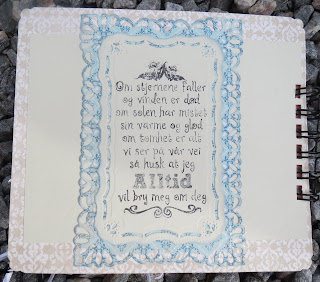 Om stjernene faller
og vinden er død
om solen har mistet
sin varme og glød
om tomhet er alt
vi ser på vår vei
så husk at jeg
Alltid
vil bry meg om deg